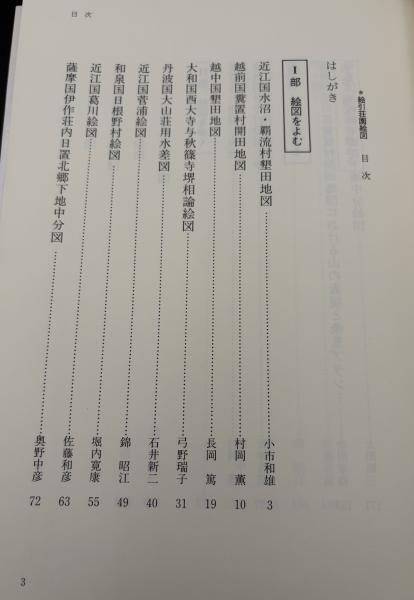 目次
*絵引荘園絵図 目次
はしがき
I部 絵図をよむ
近江国水沼・覇流村墾田地図 小市和雄 3
越前国糞置村開田地図 村岡 薫 10
越中国墾田地図 長岡 篤 19
大和国西大寺与秋篠寺堺相論絵図 弓野瑞子 31
丹波国大山荘用水差図 石井新二 40
近江国菅浦絵図 錦 昭江 49
和泉国日根野村絵図 堀内寛康 55
近江国葛川絵図 佐藤和彦 63
薩摩国伊作荘内日置北郷下地中分図 奥野中彦 72
3